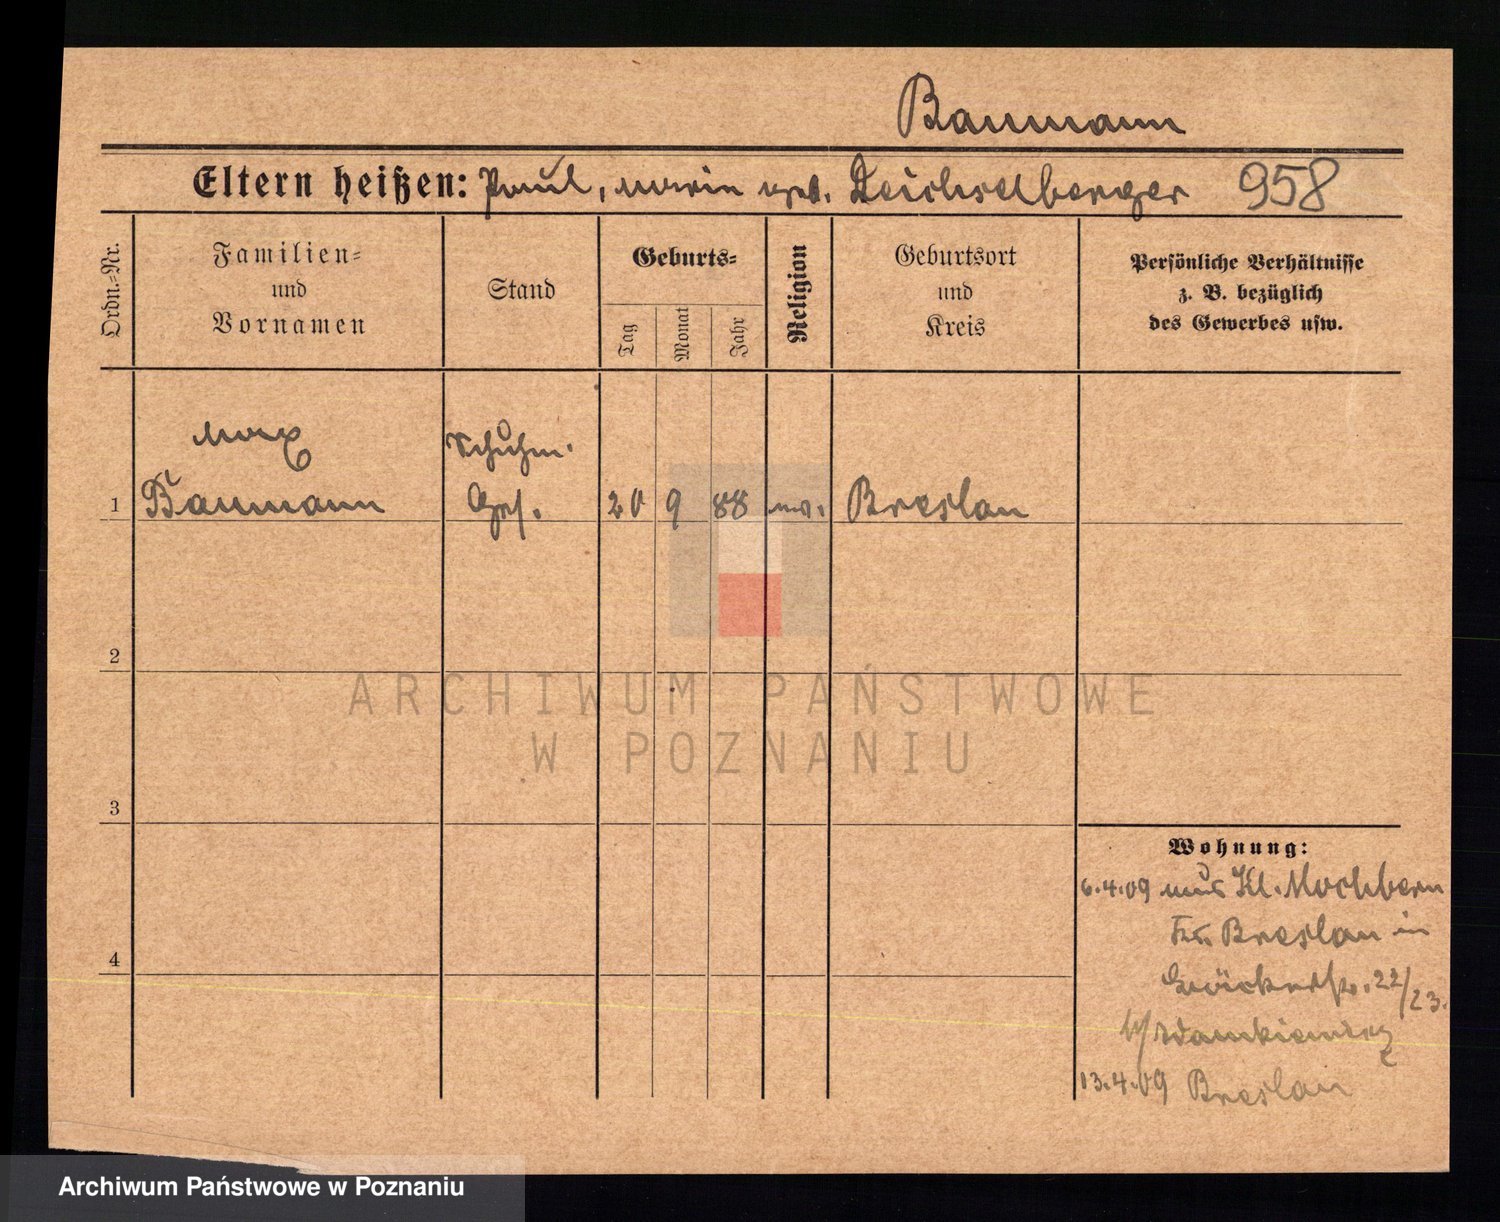 Baumann
Eltern heißen: Paul, Marie geb. Deichselberger 958
Ordn.-Nr.
Familien-
und
Vornamen
Stand
Geburts-
Tag
Monat
Jahr
Religion
Geburtsort
und
Kreis
Persönliche Verhältnisse
z. B. bezüglich
des Gewerbes usw.
Max
Schuhm.
1 Baumann Ges. 20 9 88 Breslau
2
ARCHIWUM PAŃSTWOWE
W POZNANIU
3
Wohnung:
6.4.09 aus Kl. Mochbern
Breslau in
22/23.
b/
4
13.4.09 Breslau
Archiwum Państwowe w Poznaniu